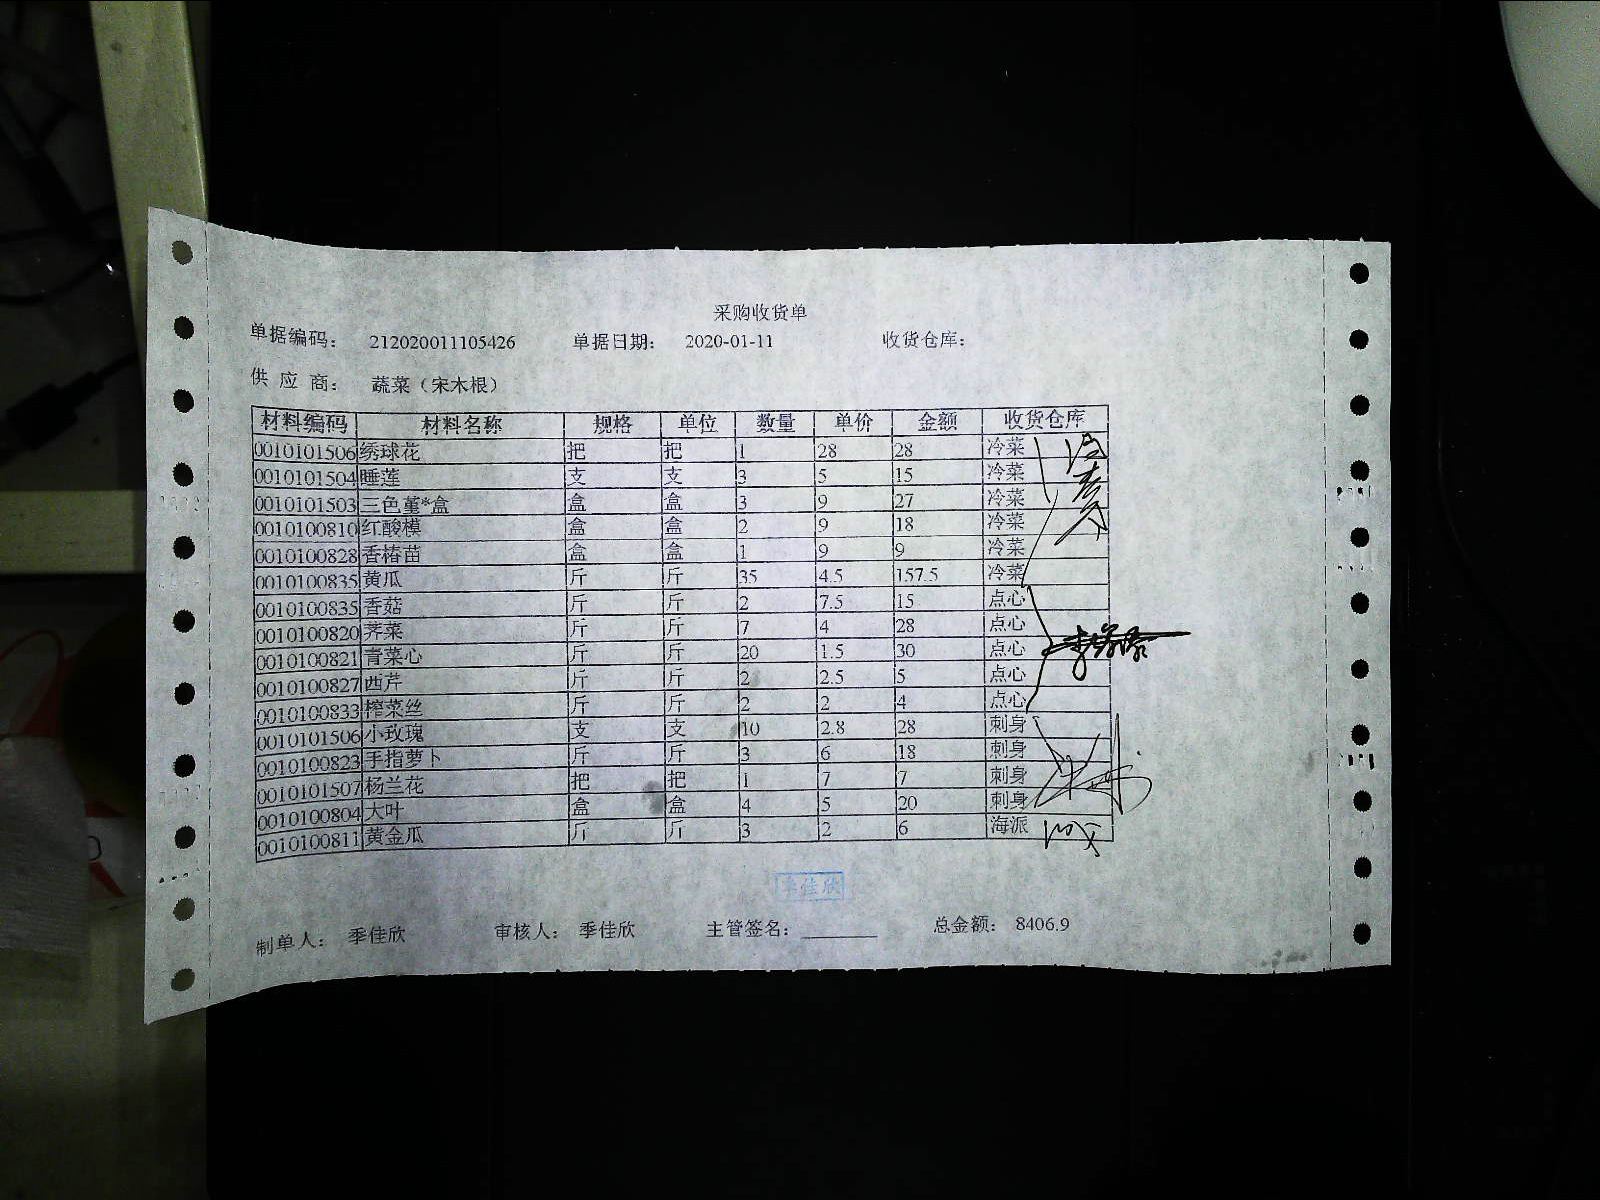 采购收货单
单据编码： 212020011105426 单据日期： 2020-01-11 收货仓库：
供 应 商： 蔬菜（宋木根）
材料编码 材料名称 规格 单位 数量 单价 金额 收货仓库
0010101506 绣球花 把 把 1 28 28 冷菜
0010101504 睡莲 支 支 3 5 15 冷菜
0010101503 三色堇*盒 盒 盒 3 9 27 冷菜
0010100810 红酸模 盒 盒 2 9 18 冷菜
0010100828 香椿苗 盒 盒 1 9 9 冷菜
0010100835 黄瓜 斤 斤 35 4.5 157.5 冷菜
0010100835 香菇 斤 斤 2 7.5 15 点心
0010100820 荠菜 斤 斤 7 4 28 点心
0010100821 青菜心 斤 斤 20 1.5 30 点心
0010100827 西芹 斤 斤 2 2.5 5 点心
0010100833 榨菜丝 斤 斤 2 2 4 点心
0010101506 小玫瑰 支 支 10 2.8 28 刺身
0010100823 手指萝卜 斤 斤 3 6 18 刺身
0010101507 杨兰花 把 把 1 7 7 刺身
0010100804 大叶 盒 盒 4 5 20 刺身
0010100811 黄金瓜 斤 斤 3 2 6 海派
季佳欣
制单人： 季佳欣 审核人： 季佳欣 主管签名： 总金额： 8406.9